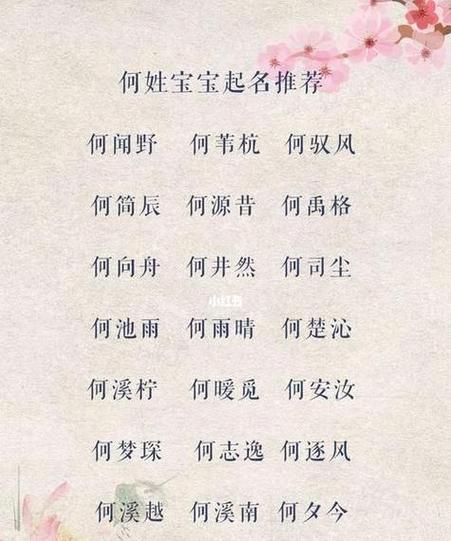 何姓宝宝起名推荐
何闻野 何苇杭 何驭风
何简辰 何源昔 何禹格
何向舟 何井然 何司尘
小红书
何池雨 何雨晴 何楚沁
何溪柠 何暖觅 何安汝
何梦琛 何志逸 何逐风
何溪越 何溪南 何夕今